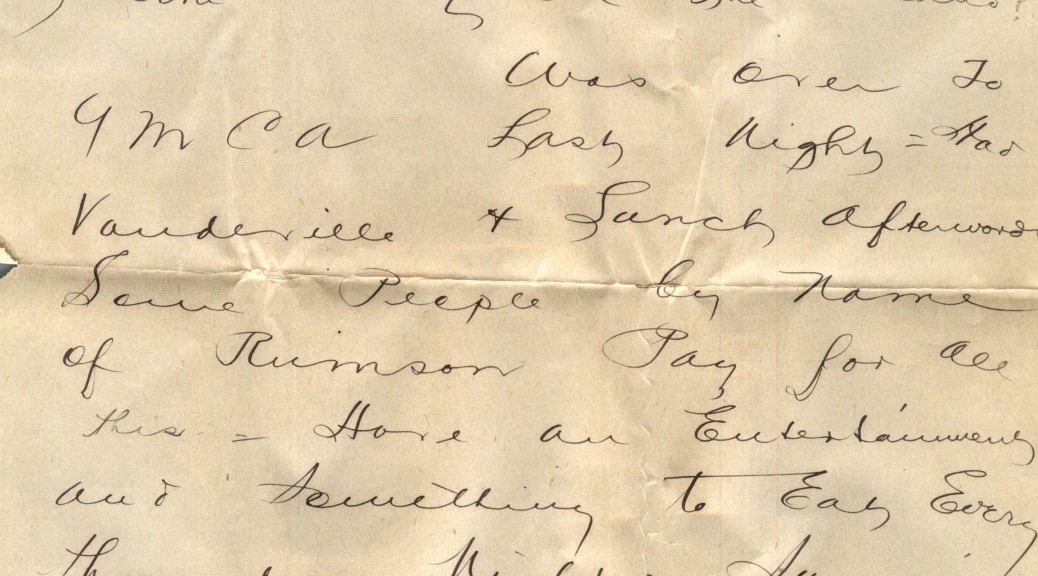 Was over To
Y M C A Last Night = Had
Vaudeville + Lunch Afterwords
Some People by Name
of Rumson Pay for all
this = Have an Entertainment
and Something to Eat Every